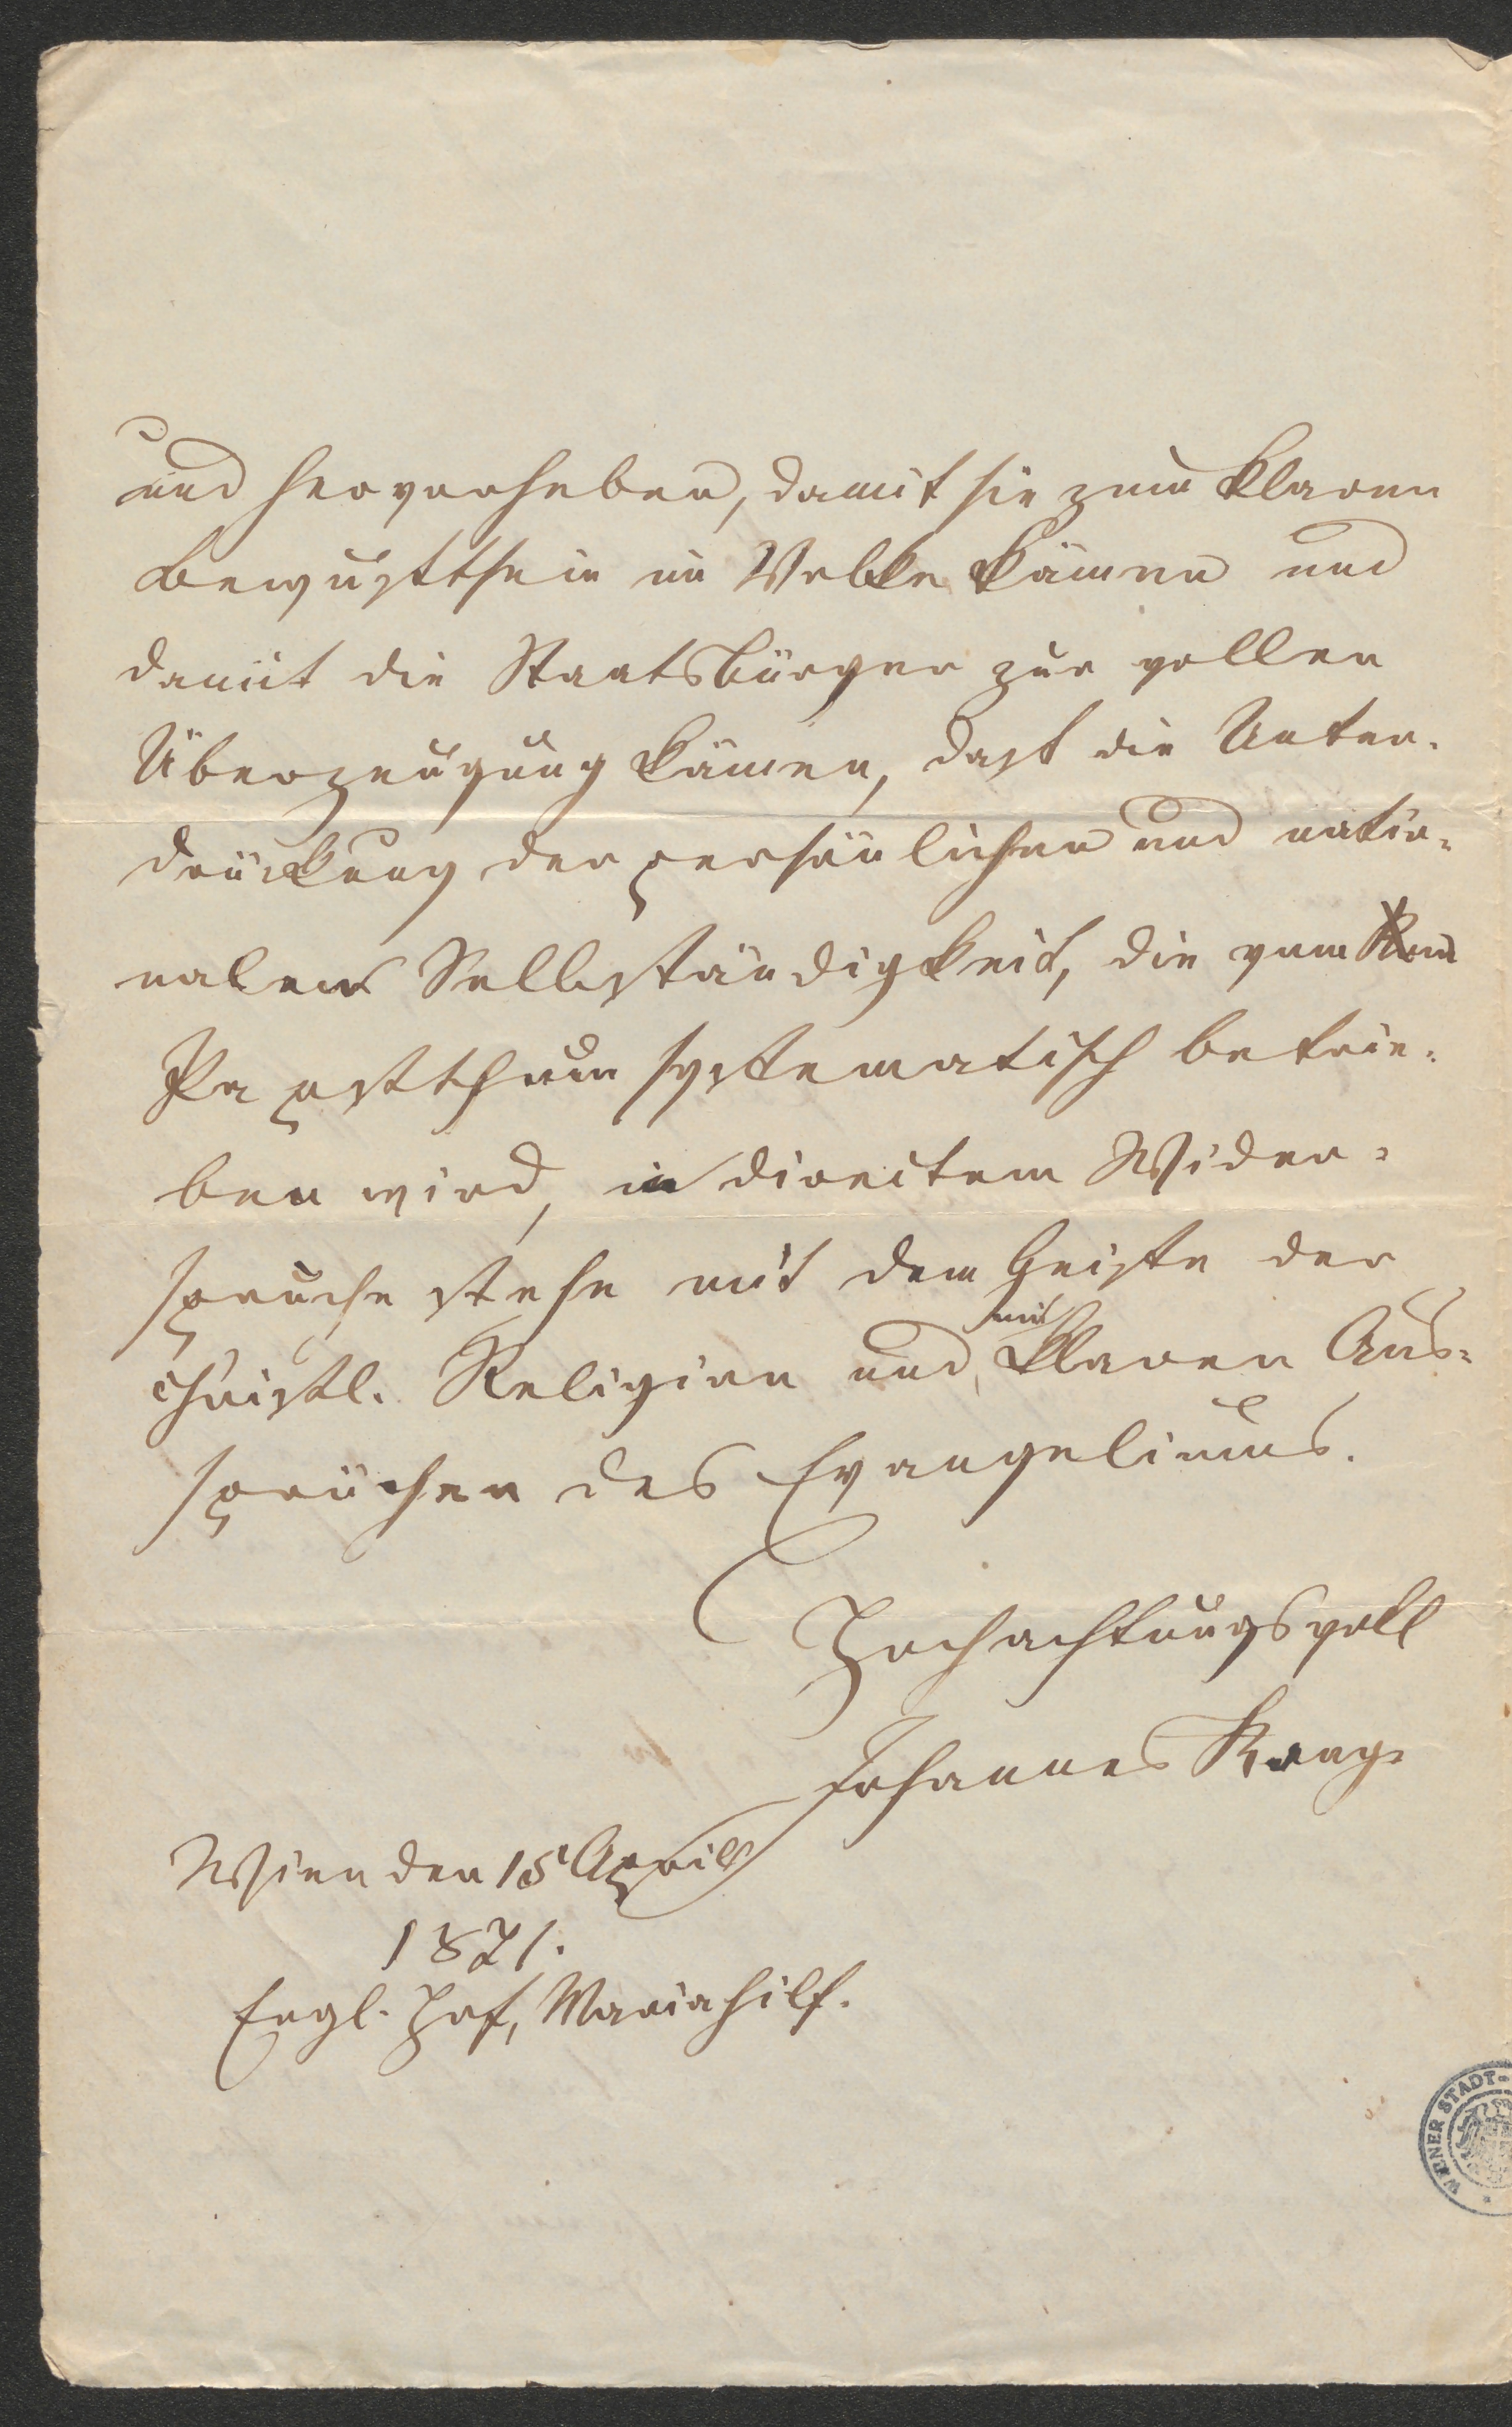 und hervorheben, damit sie zum klaren
Bewußtsein im Volke kämen und
damit die Staatsbürger zur vollen
Überzeugung kämen, daß die Unter-
drückung der persönlichen und natio-
nalen Selbständigkeit, die vom
Papstthum systematisch betrie-
ben wird, in direktem Wider-
spruche stehe mit dem Geiste der
christl. Religion und mit klaren Aus-
sprüchen des Evangeliums.
Hochachtungsvoll
Johannes Ronge
Wien den 15 April
1871.
Engl. Hof, Mariahilf.
WIENER STADT-